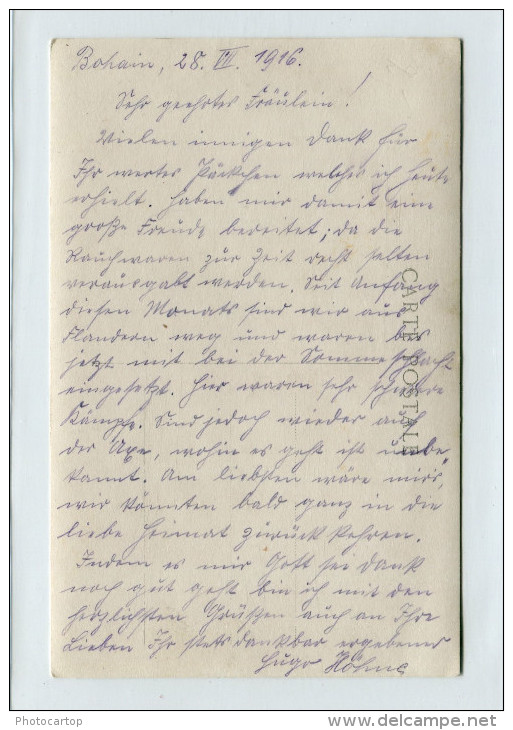 Bohain, 28. VII. 1916.
Sehr geehrtes Fräulein!
Vielen innigen Dank für
Ihr wertes Päckchen welches ich heute
erhielt. Haben mir damit eine
große Freude bereitet; da die
Rauchwaren zur Zeit recht selten
verausgabt werden. Seit Anfang
diesen Monats sind wir aus
Flandern weg und waren bis
jetzt mit bei der Sommeschlacht
eingesetzt. Hier waren sehr schwere
Kämpfe. Sind jedoch wieder auf
der Axe, wohin es geht ist unbe-
kannt. Am liebsten wäre mirs,
wir könnten bald ganz in die
liebe Heimat zurück kehren.
Indem es mir Gott sei Dank
noch gut geht bin ich mit den
herzlichsten Grüßen auch an Ihre
Lieben Ihr stets dankbar ergebener
Hugo Höhne
CARTE POSTALE
Photocartop
http://photocartop.delcampe.net